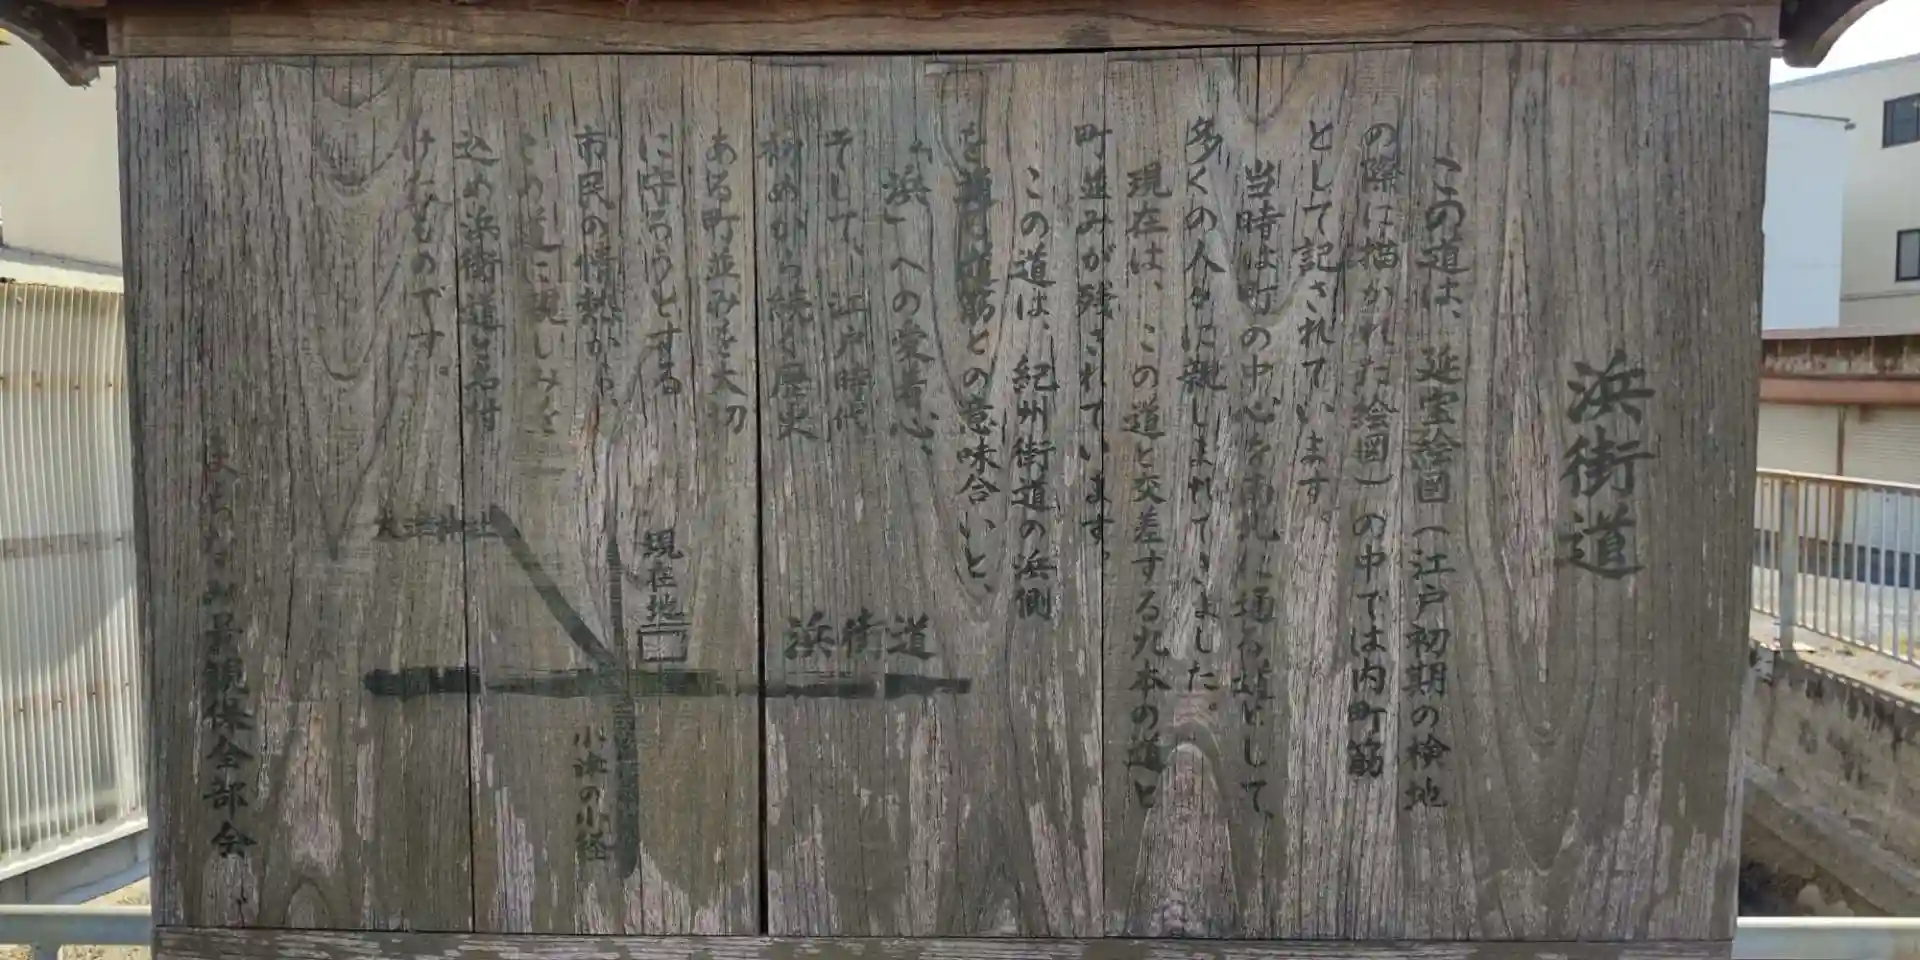 浜街道
この道は、延宝絵図（江戸初期の検地
の際に描かれた絵図）の中では内町筋
として記されています。
当時は町の中心を南北に通る道として、
多くの人々に親しまれてきました。
現在は、この道と交差する九本の道と
町並みが残されています。
この道は、紀州街道の浜側
を通る道筋との意味合いと、
「浜」への愛着心、
そして、江戸時代
初めから続く歴史
ある町並みを大切
に守ろうとする
市民の情熱から、
この道に親しみを
込め浜街道と名付
けたものです。
大津神社
現在地
浜街道
小津の小径
まちなみ景観保全部会